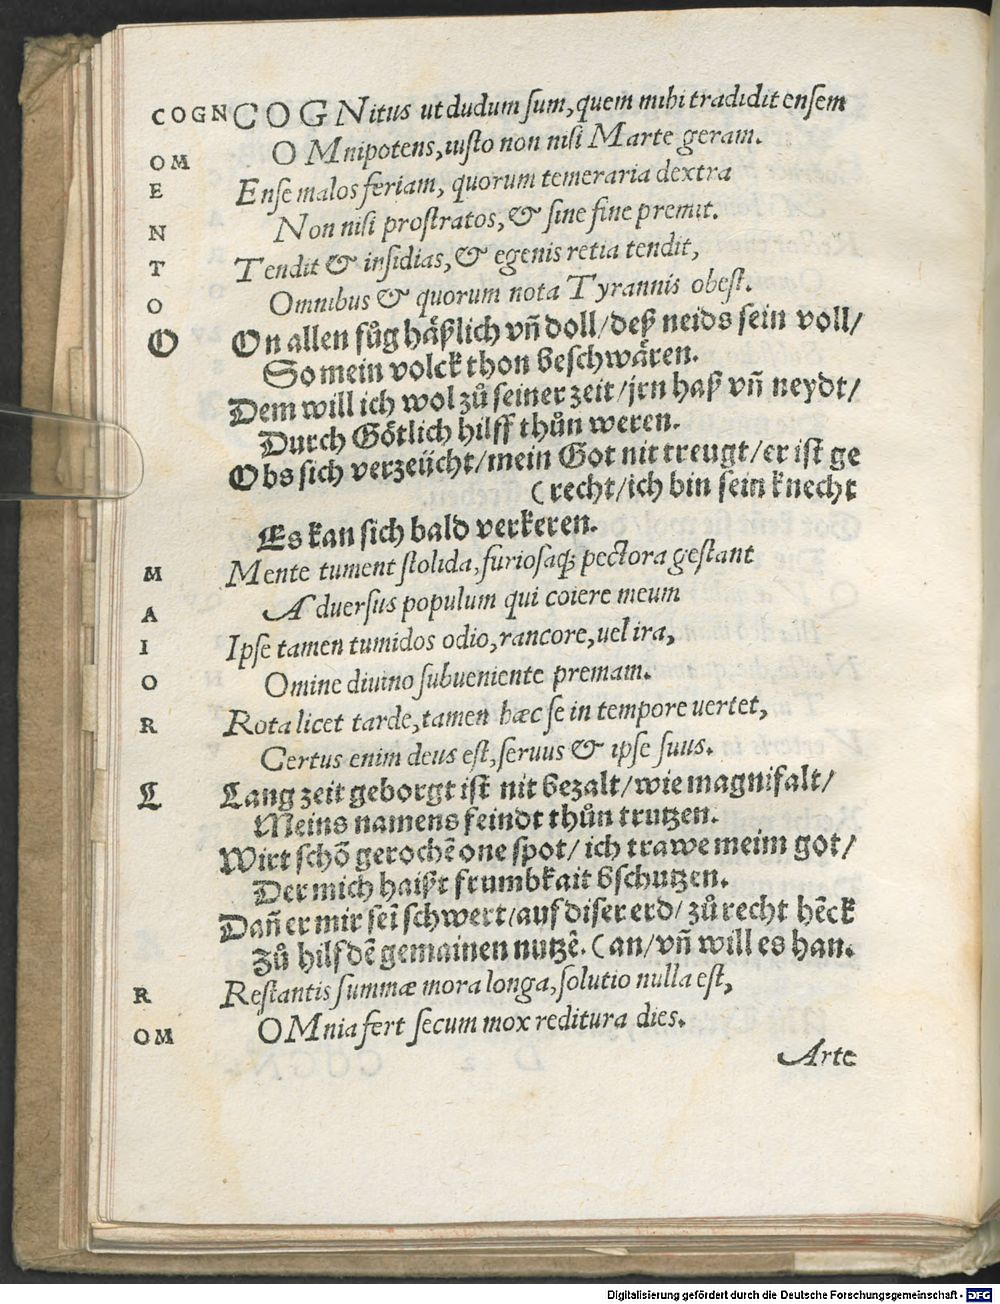 COGN COGNitus ut dudum sum, quem mihi tradidit ensem
OM OMnipotens, iusto non nisi Marte geram.
E Ense malos feriam, quorum temeraria dextra
N Non nisi prostratos, & sine fine premit.
T Tendit & insidias, & egenis retia tendit,
O Omnibus & quorum nota Tyrannis obest.
O On allen fůg häßlich vñ doll/ deß neids sein voll/
So mein volck thon beschwären.
Dem will ich wol zů seiner zeit/ jrn haß vñ neydt/
Durch Götlich hilff thůn weren.
Obs sich verzeücht/ mein Got nit treugt/ er ist ge
(recht/ ich bin sein knecht
Es kan sich bald verkeren.
M Mente tument stolida, furiosaq; pectora gestant
A Aduersus populum qui coiere meum
I Ipse tamen tumidos odio, rancore, uel ira,
O Omine diuino subueniente premam.
R Rota licet tarde, tamen hæc se in tempore uertet,
Certus enim deus est, seruus & ipse suus.
L Lang zeit geborgt ist nit bezalt/ wie magnifalt/
Meins namens feindt thůn trutzen.
Wirt schõ gerochẽ one spot/ ich trawe meim got/
Der mich haißt frumbkait bschutzen.
Dañ er mir seĩ schwert/ auf diser erd/ zů recht hẽck
Zů hilf dẽ gemainen nutzẽ. (an/ vñ will es han.
R Restantis summæ mora longa, solutio nulla est,
OM OMnia fert secum mox reditura dies.
Arte
Digitalisierung gefördert durch die Deutsche Forschungsgemeinschaft - DFG